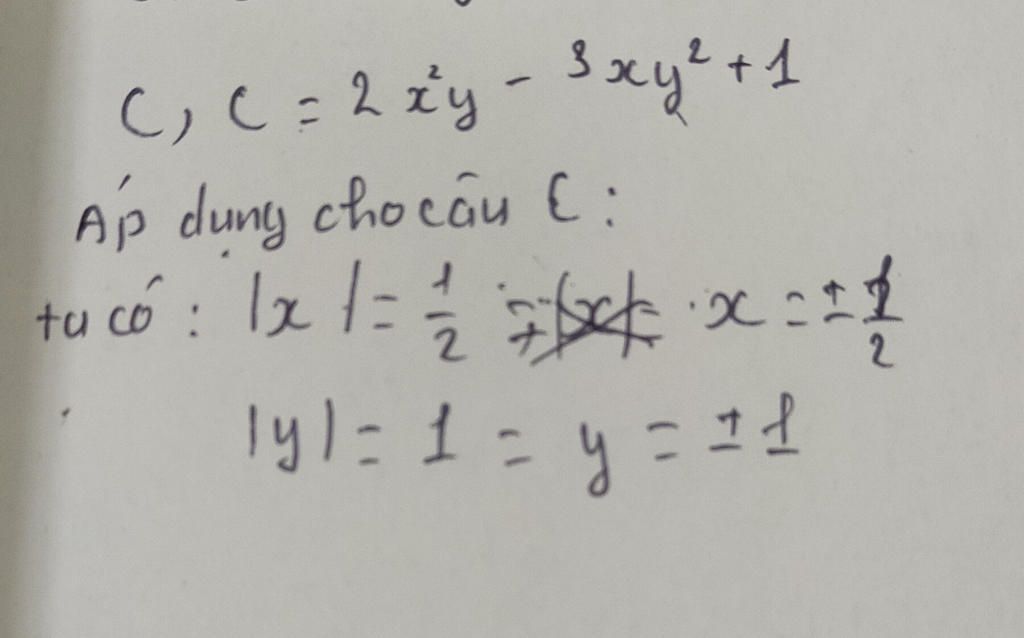 C, C = 2x²y - 3xy² + 1
Áp dụng cho câu C :
ta có : |x| = 1/2 · x = ± 1/2
|y| = 1 = y = ± 1